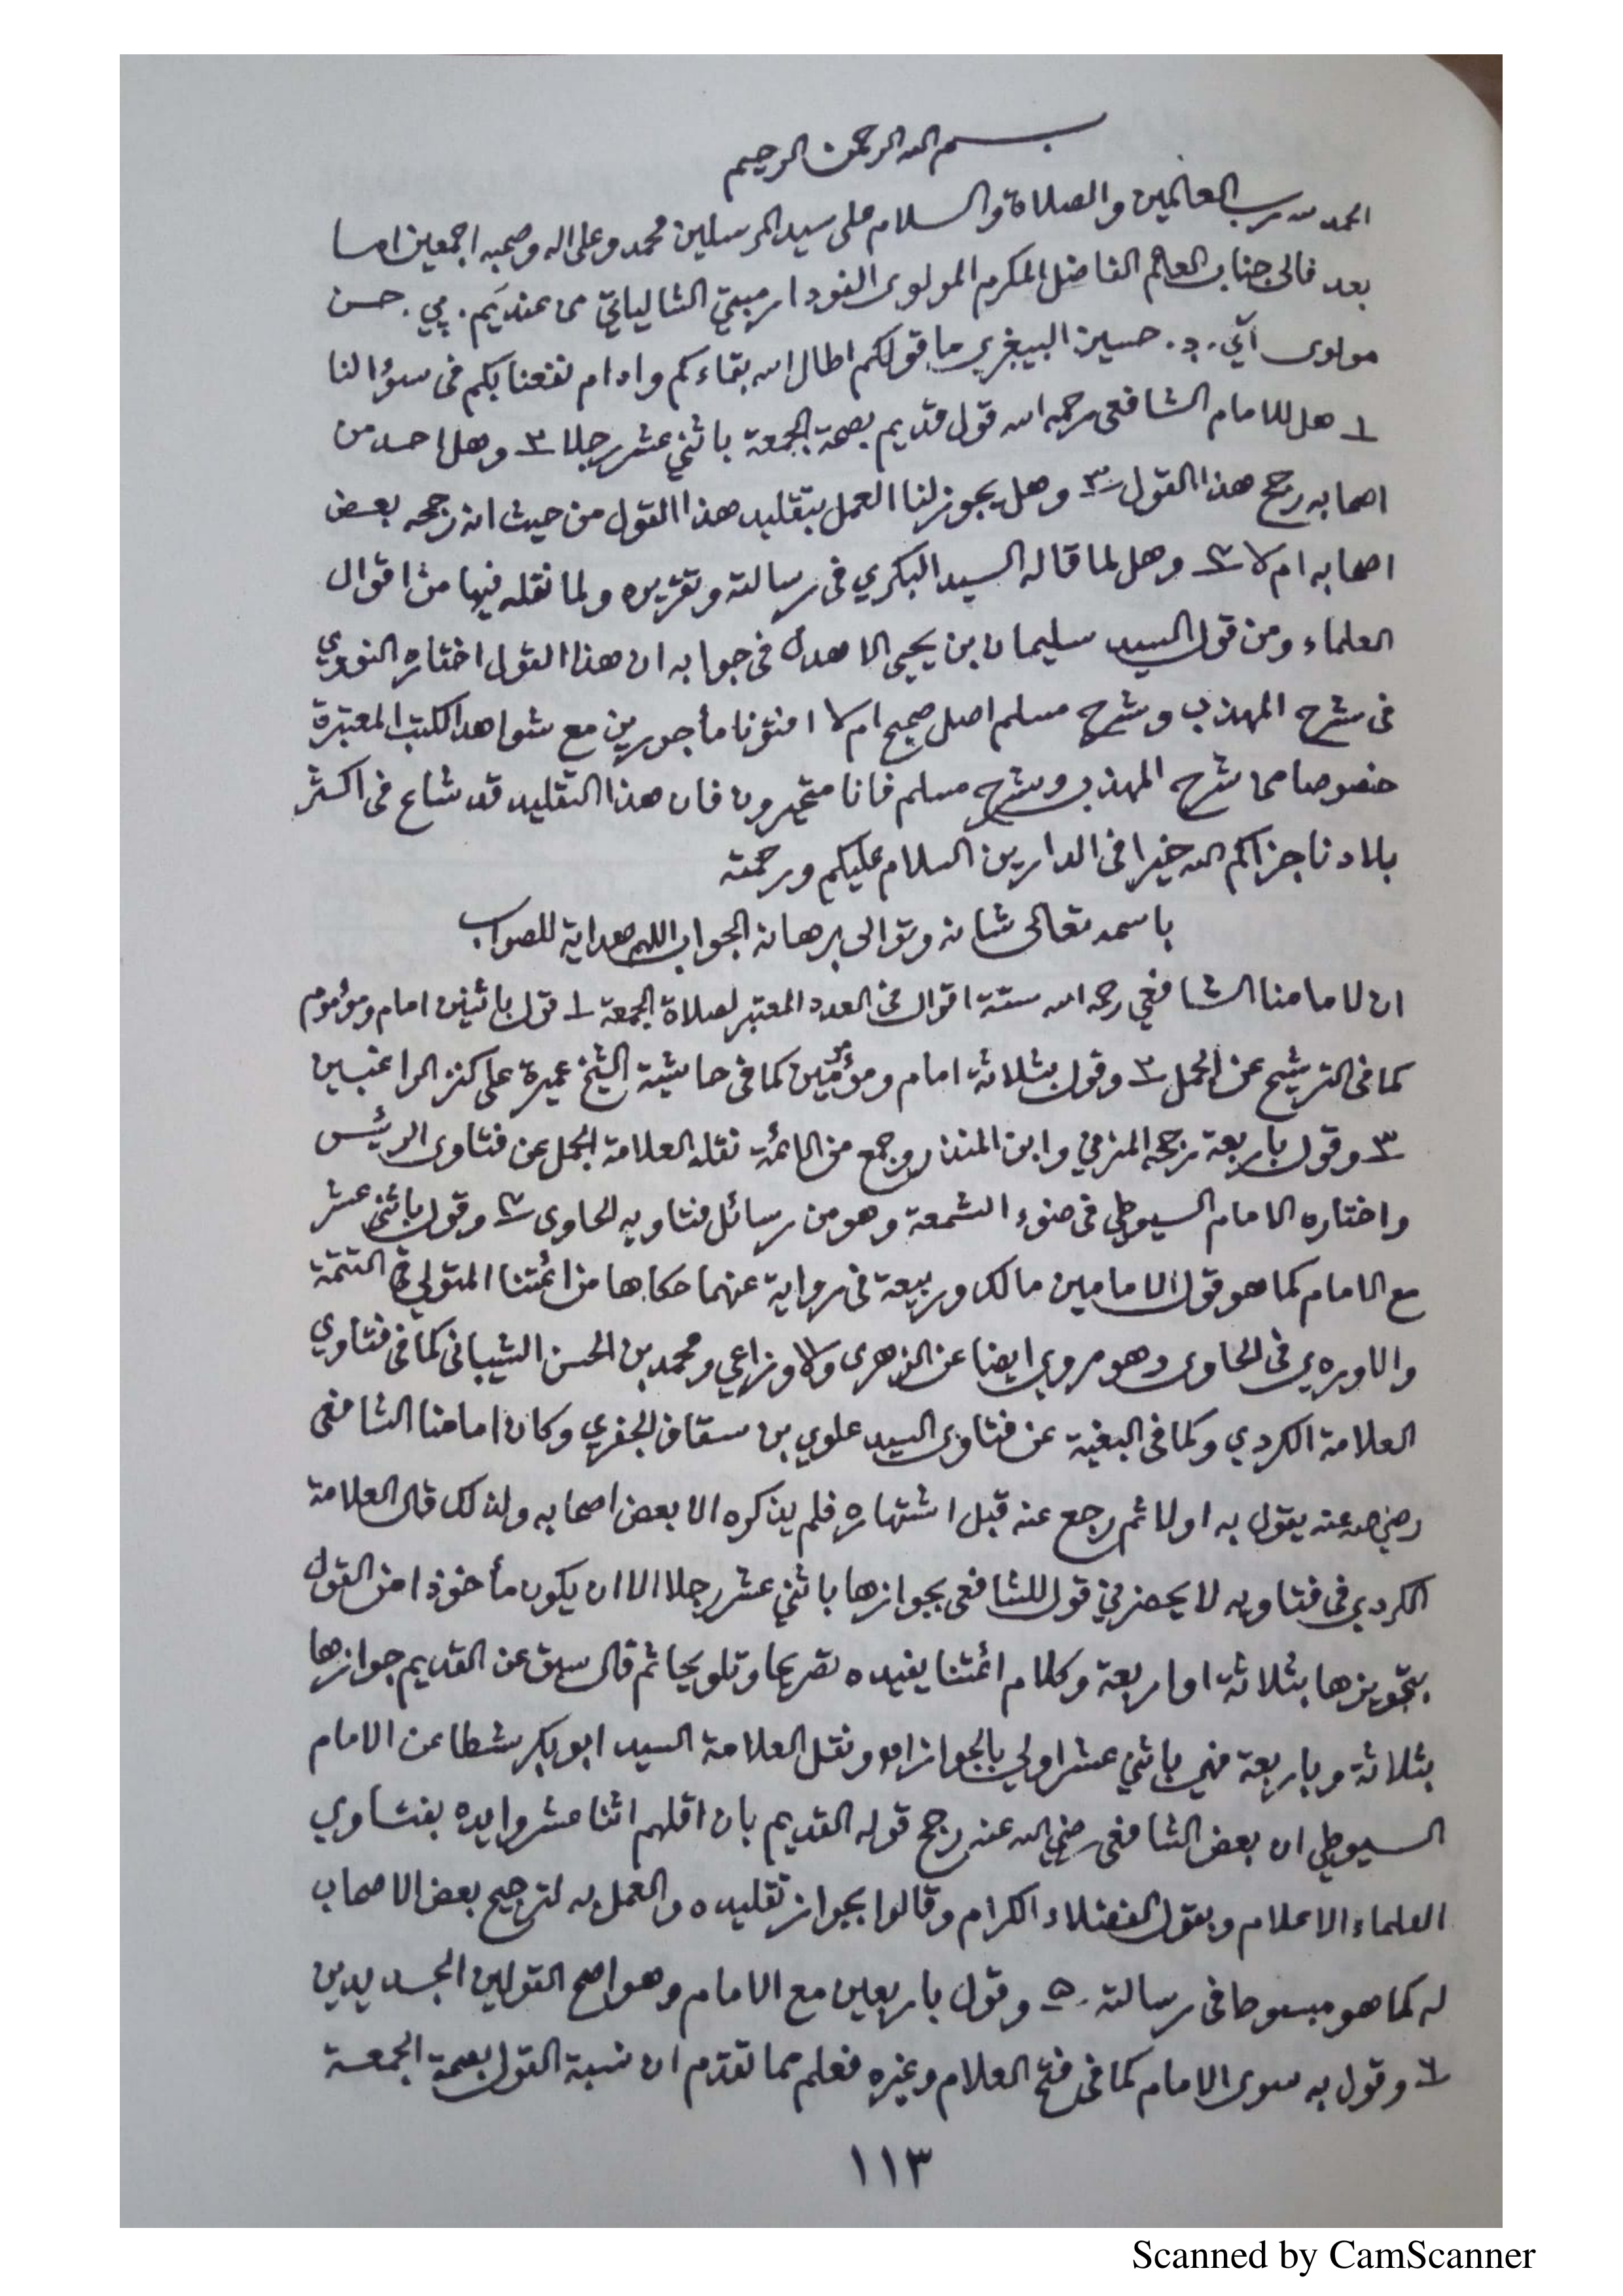 بسم الله الرحمن الرحيم
الحمد لله رب العالمين والصلاة والسلام على سيد المرسلين محمد وعلى اله وصحبه اجمعين اما
بعد فالى جناب العالم الفاضل المكرم المولوى الشالياتي من عند يم. پي. حسن
مولوى آئي. د. حسين ما قولكم اطال الله بقاءكم وادام نفعنا بكم فى سؤالنا
١ هل للامام الشافعى رحمه الله قول قديم بصحة الجمعة باثني عشر رجلا ٢ وهل احد من
اصحابه رجح هذا القول ٣ وهل يجوز لنا العمل بتقليد هذا القول من حيث انه رجحه بعض
اصحابه ام لا ٤ وهل لما قاله السيد البكري فى رسالته وتقريره ولما نقله فيها من اقوال
العلماء ومن قول السيد سليمان بن يحيى الاهدل فى جوابه ان هذا القول اختاره النووي
فى شرح المهذب وشرح مسلم اصل صحيح ام لا افتونا مأجورين مع شواهد الكتب المعتبرة
خصوصا من شرح المهذب وشرح مسلم فانا متحيرون فان هذا التقليد قد شاع فى اكثر
بلادنا جزاكم الله خيرا فى الدارين السلام عليكم ورحمته
باسمه تعالى شانه وتوالى برهانه الجواب اللهم هداية للصواب
ان لامامنا الشافعي رحمه الله ستة اقوال فى العدد المعتبر لصلاة الجمعة ١ قول باثنين امام ومؤموم
كما فى الترشيح عن الجمل ٢ وقول بثلاثة امام ومؤمين كما فى حاشية الشيخ عميرة على كنز الراغبين
٣ وقول باربعة رجحه المزني وابن المنذر وجمع من الائمة نقله العلامة الجمل عن فتاوى الرئيس
واختاره الامام السيوطي فى ضوء الشمعة وهو من رسائل فتاويه الحاوى ٤ وقول باثني عشر
مع الامام كما هو قول الامامين مالك وربيعة فى رواية عنهما حكاها من ائمتنا المتولي فى التتمة
والاوردي فى الحاوى وهو مروي ايضا عن الزهرى ولاوزاعي ومحمد بن الحسن الشيبانى كما فى فتاوي
العلامة الكردي وكما فى البغية عن فتاوى السيد علوي بن سقاف الجفري وكان امامنا الشافعى
رضي الله عنه يقول به اولا ثم رجع عنه قبل اشتهاره فلم يذكره الا بعض اصحابه ولذلك قال العلامة
الكردي فى فتاويه لا يحضرني قول للشافعى بجوازها باثني عشر رجلا الا ان يكون مأخوذا من القول
بتجويزها بثلاثة او اربعة وكلام ائمتنا يفيده تصريحا وتلويحا ثم قال سبق عن القديم جوازها
بثلاثة وباربعة فهي باثني عشر اولي بالجواز اه ونقل العلامة السيد ابو بكر شطا عن الامام
السيوطي ان بعض الشافعى رضي الله عنه رجح قوله القديم بان اقلهم اثنا عشر وايده بفتاوي
العلماء الاعلام وبقول الفضلاء الكرام وقالوا بجواز تقليده والعمل به لترجيح بعض الاصحاب
له كما هو مبسوطا فى رسالته. ٥ وقول باربعين مع الامام وهو اصح القولين الجديدين
٦ وقول به سوى الامام كما فى فتح العلام وغيره فعلم مما تقدم ان نسبة القول بصحة الجمعة
١١٣
Scanned by CamScanner